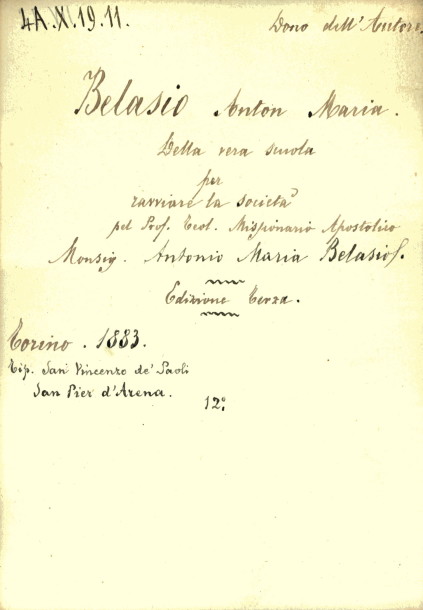 4A.X.19.11.
Dono dell'Autore.
Belasio Anton Maria.
Della vera scuola
per
ravviare la società
pel Prof. Teol. Missionario Apostolico
Monsig. Antonio Maria Belasio.
Edizione Terza.
Torino. 1883.
Tip. San Vincenzo de' Paoli
San Pier d'Arena.
12.º